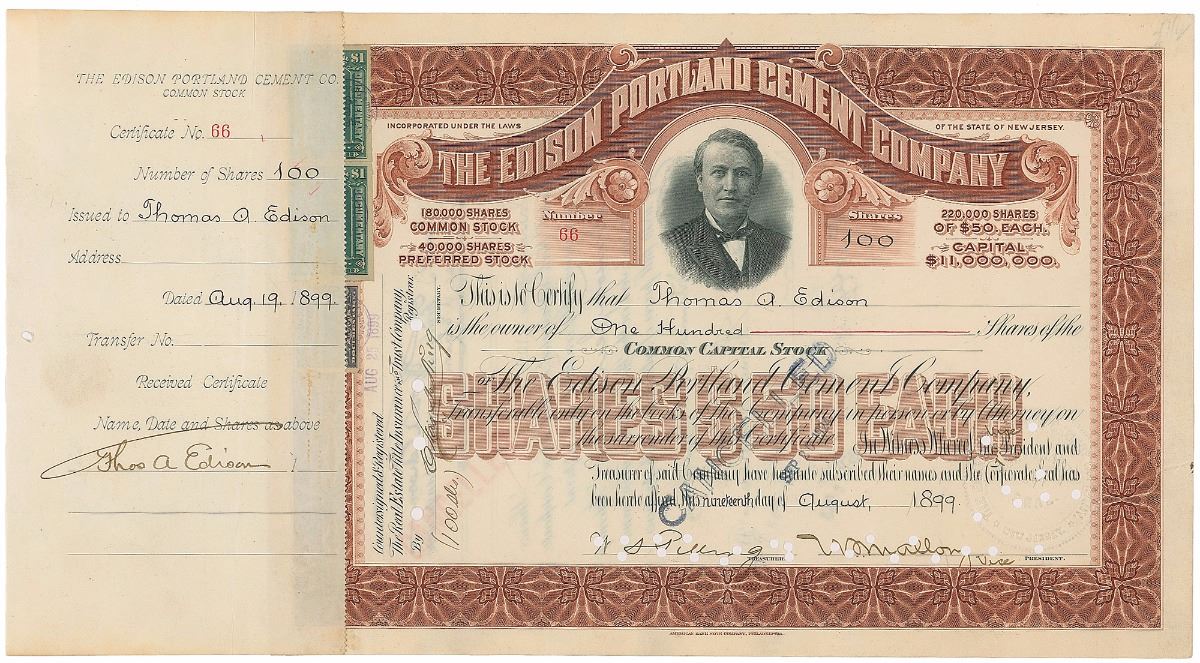 THE EDISON PORTLAND CEMENT CO.
COMMON STOCK
Certificate No. 66
Number of Shares 100
Issued to Thomas A. Edison
Address
Dated Aug. 19, 1899
Transfer No.
Received Certificate
Name, Date and Shares as above
Thos A Edison
$1
DOCUMENTARY
$1
DOCUMENTARY
THE EDISON PORTLAND CEMENT COMPANY
INCORPORATED UNDER THE LAWS
OF THE STATE OF NEW JERSEY.
180,000 SHARES
COMMON STOCK
40,000 SHARES
PREFERRED STOCK
Number
66
Shares
100
220,000 SHARES
OF $50. EACH.
CAPITAL
$11,000,000.
This is to Certify that Thomas A. Edison
is the owner of One Hundred Shares of the
COMMON CAPITAL STOCK
of The Edison Portland Cement Company,
transferable only on the books of the Company in person or by Attorney on
the surrender of this Certificate. In Witness Whereof, the President and
Treasurer of said Company have hereunto subscribed their names and the Corporate Seal has
been hereto affixed, this nineteenth day of August, 1899.
SHARES $50 EACH
CANCELLED
SEP
W S Pilling
TREASURER.
W D Mallory
Vice PRESIDENT.
Countersigned & Registered
The Real Estate Title Insurance and Trust Company,
Registrar.
By
SECRETARY.
(100 shs)
AUG 25 1899
AMERICAN BANK NOTE COMPANY, PHILADELPHIA.